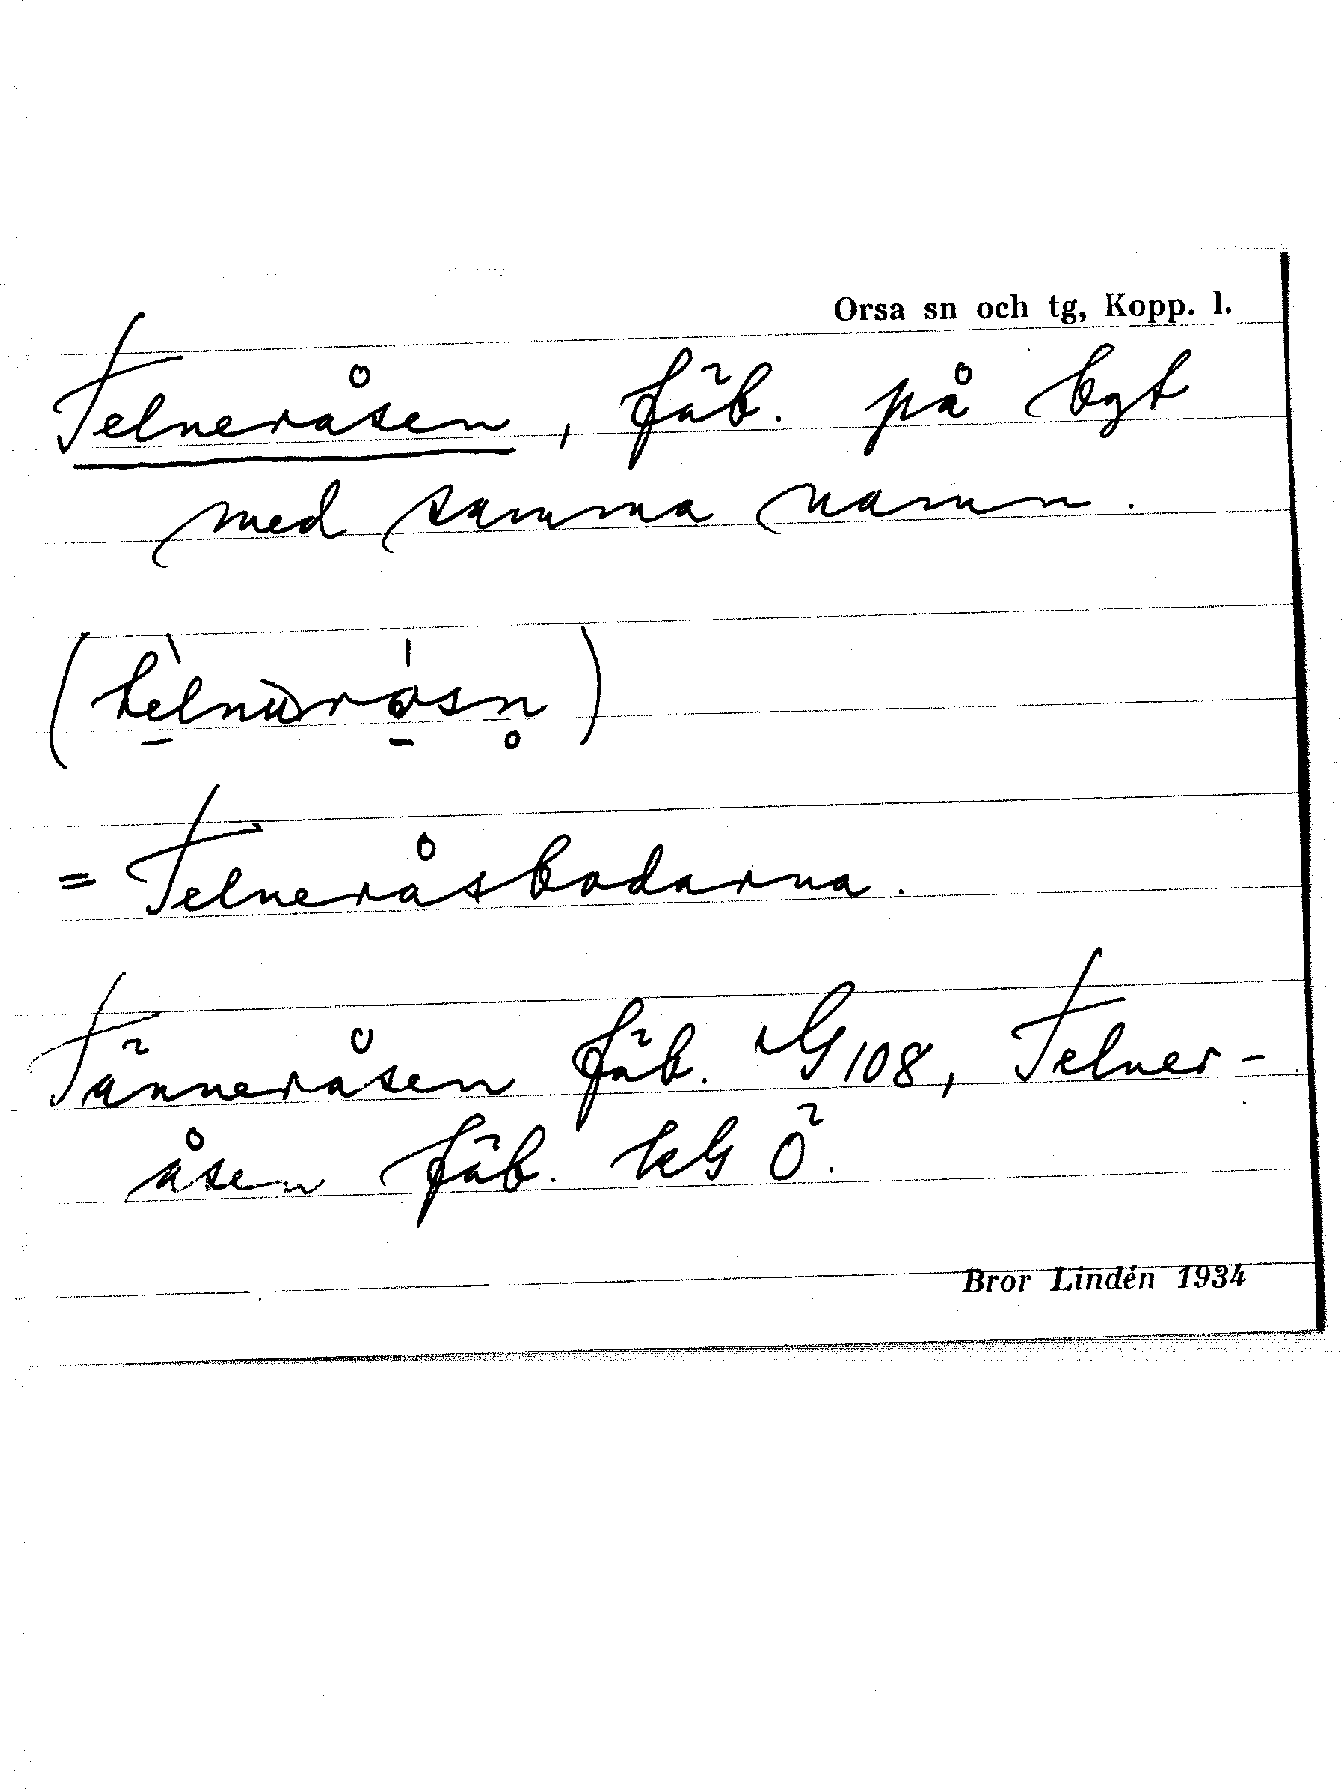 Orsa sn och tg, Kopp. l.
Telneråsen, fäb. på bgt
med samma namn.
= Telneråsbodarna.
Tänneråsen fäb. G 108, Telner-
åsen fäb. kG Ö.
Bror Lindén 1934